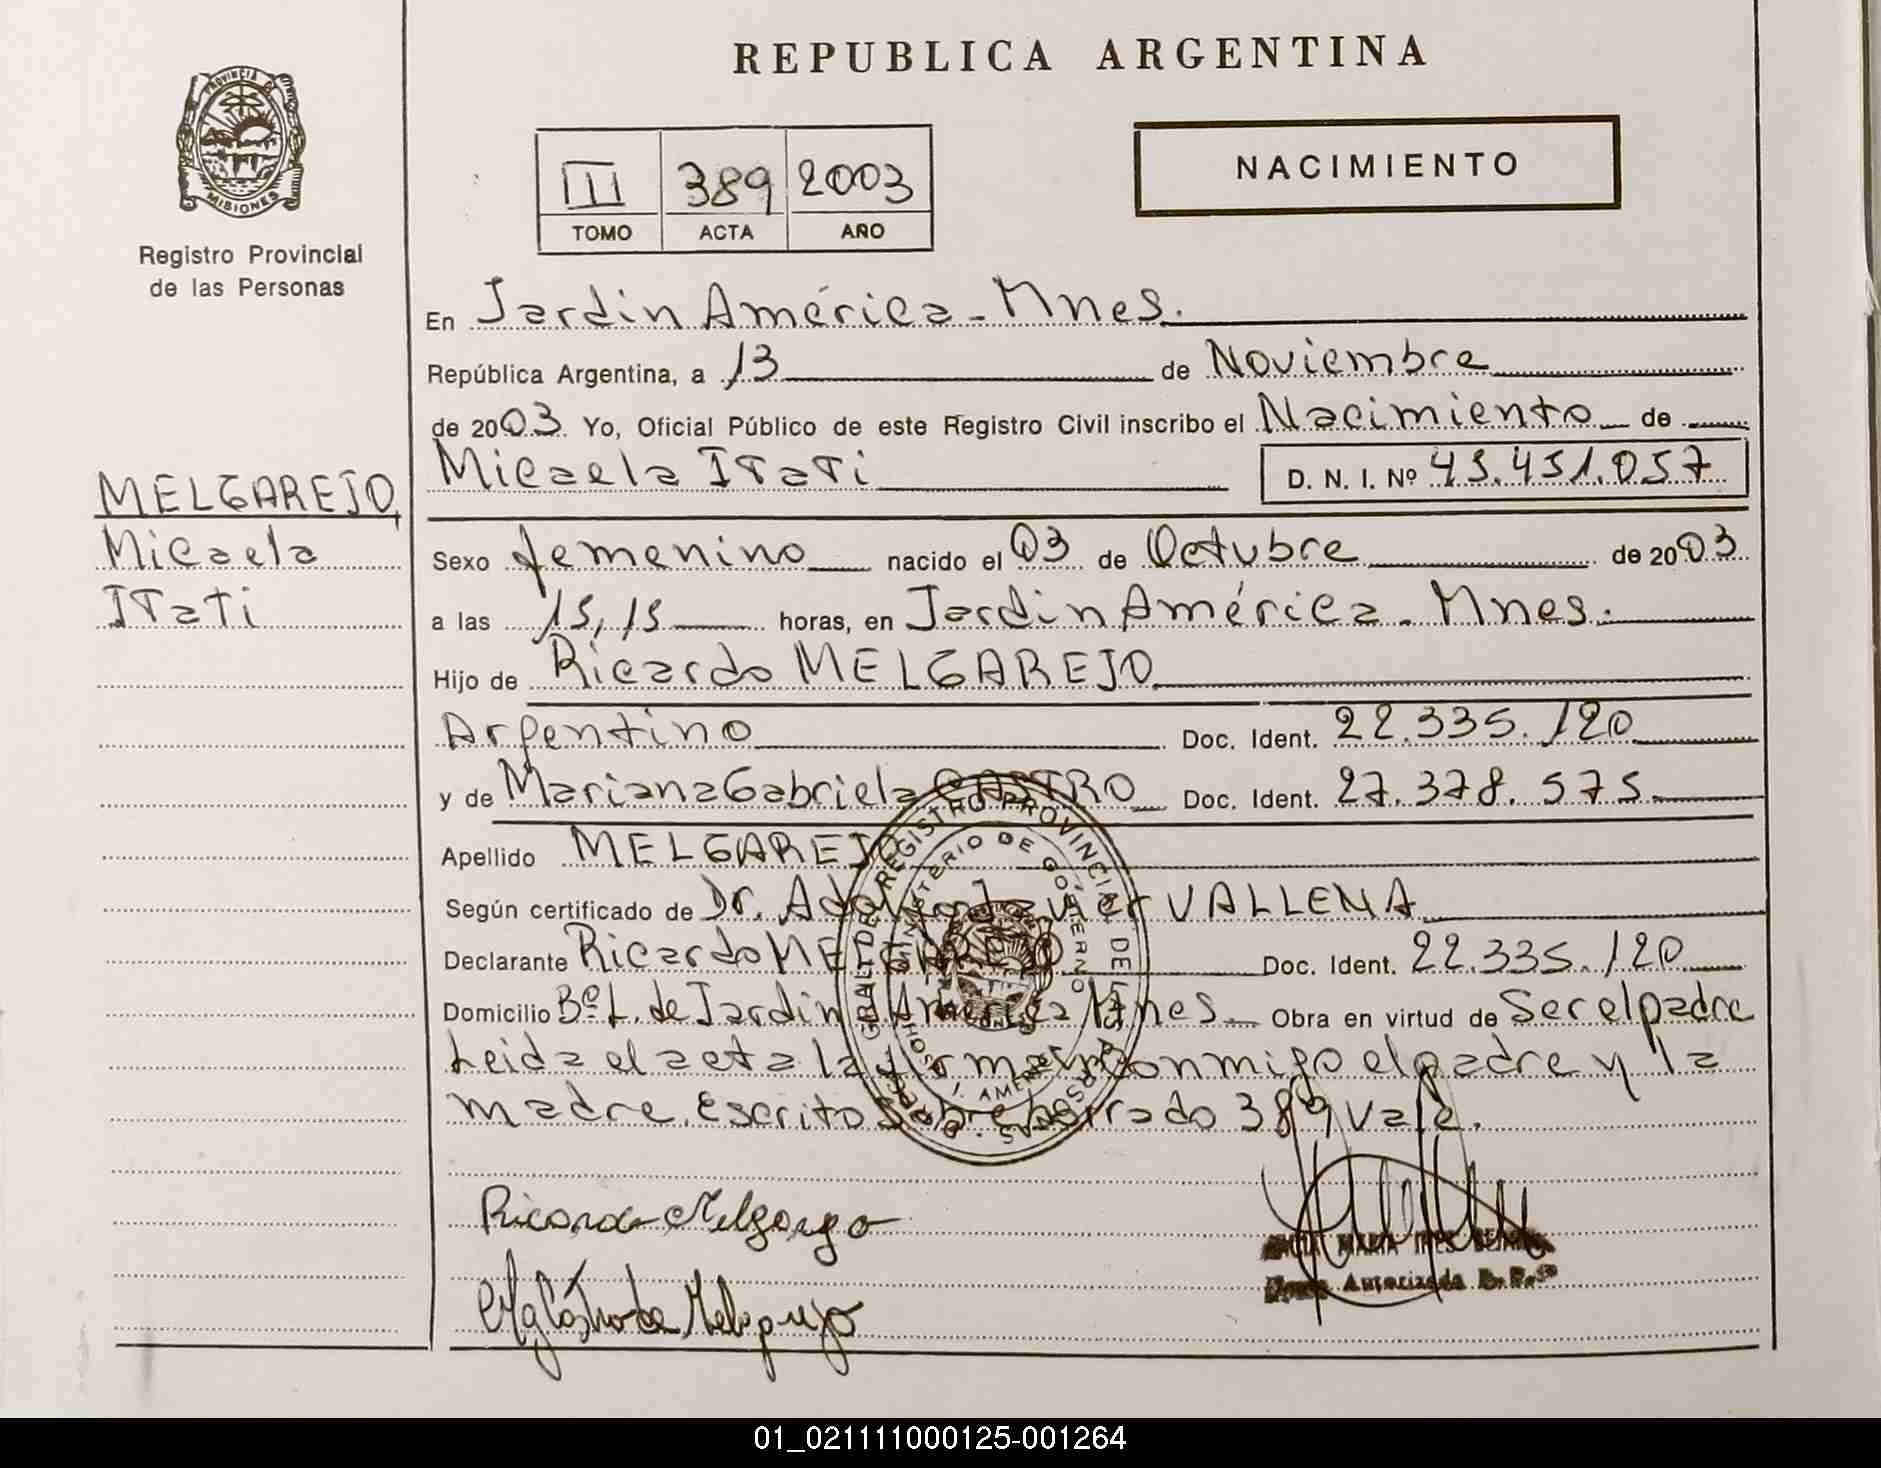 REPUBLICA ARGENTINA
PROVINCIA DE
MISIONES
Registro Provincial
de las Personas
III 389 2003
TOMO ACTA AÑO
NACIMIENTO
En Jardin América - Mnes.
República Argentina, a 13 de Noviembre
de 2003 Yo, Oficial Público de este Registro Civil inscribo el Nacimiento de
Micaela ITaTi D. N. I. Nº 45.451.057
MELGAREJO,
Micaela
ITaTi
Sexo femenino nacido el 03 de Octubre de 2003
a las 15,15 horas, en Jardin América - Mnes.
Hijo de Ricardo MELGAREJO
Argentino Doc. Ident. 22.335.120
y de Mariana Gabriela CASTRO Doc. Ident. 27.378.575
Apellido MELGAREJO
Según certificado de Dr. Adolfo Javier VALLENA
Declarante Ricardo MELGAREJO Doc. Ident. 22.335.120
Domicilio Bº L. de Jardin América Mnes. Obra en virtud de Ser el padre
Leida el acta la firman conmigo el padre y la
madre. Escrito sobre borrado 389 vale.
REGISTRO PROVINCIAL DE LAS PERSONAS
MINISTERIO DE GOBIERNO
Ricardo Melgarejo
MgCastro de Melgarejo
MARIA INES
Autorizada
01_021111000125-001264